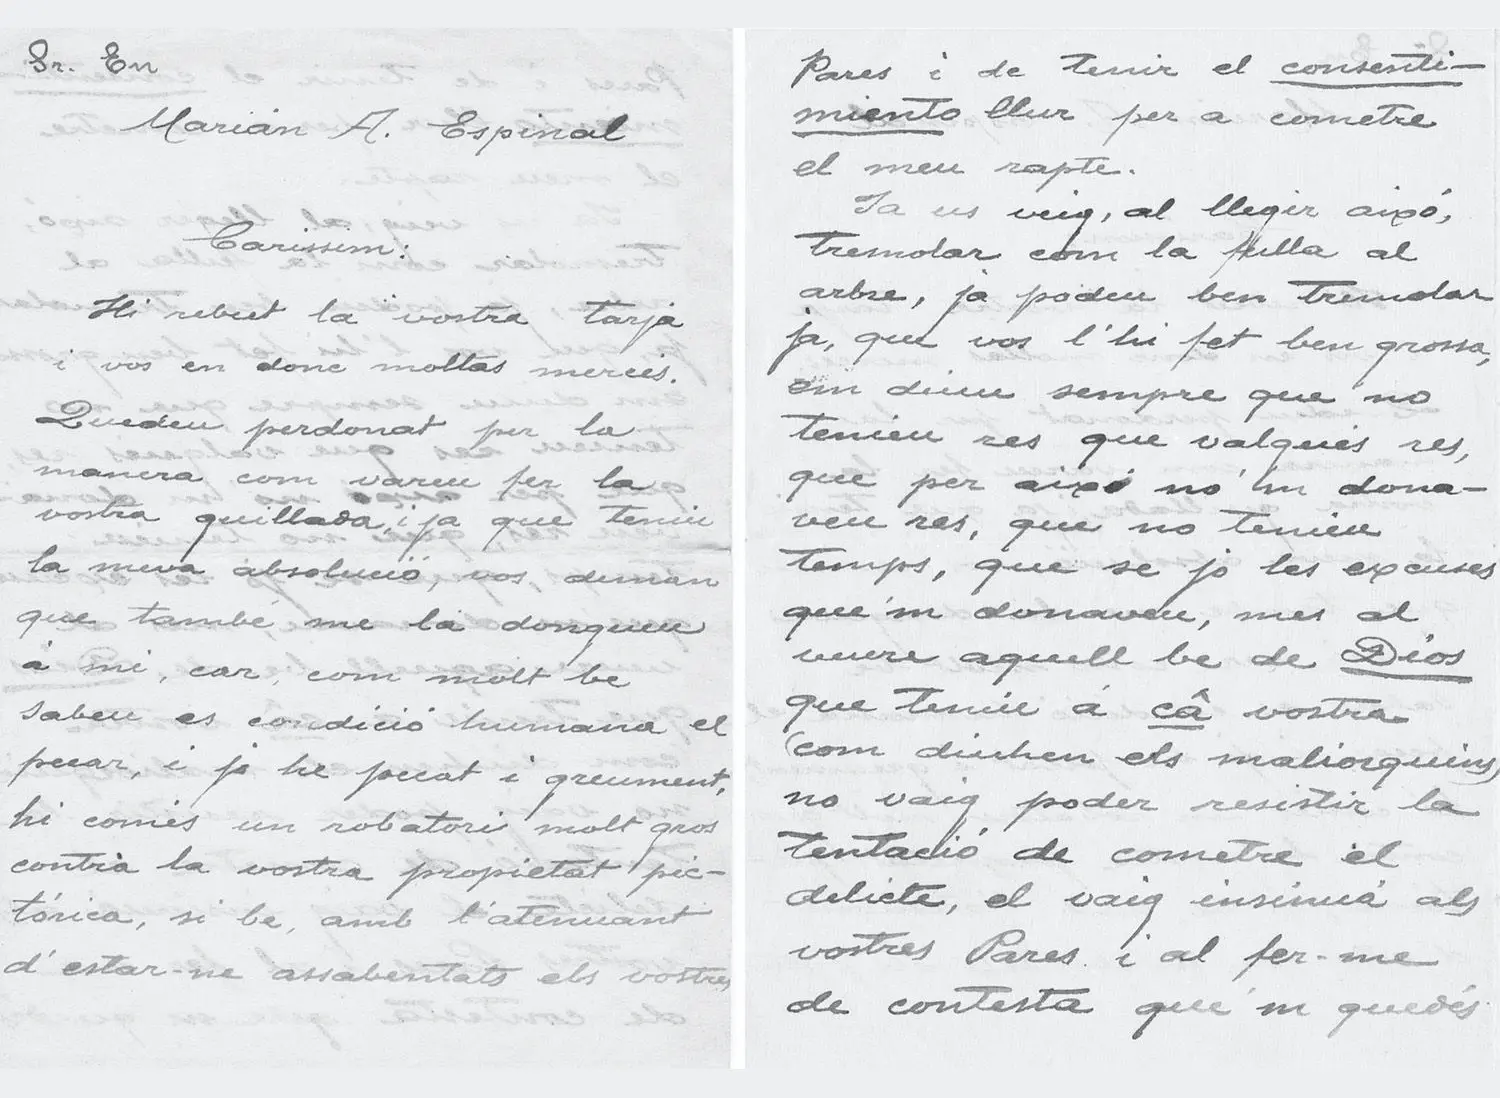 Sr. En
Marián A. Espinal
Caríssim:
Hi rebut la vostra tarja
i vos en donc moltas mercés.
Quedeu perdonat per la
manera com vareu fer la
vostra quillada, i ja que teniu
la meva absolució, vos deman
que també me la dongueu
á mi, car, com molt be
sabeu es condició humana el
pecar, i jo he pecat i greument,
hi comés un robatori molt gros
contra la vostra propietat pic-
tórica, si be, amb l'atenuant
d'estar-ne assabentats els vostres
Pares i de tenir el consenti-
miento llur per a cometre
el meu rapte.
Ja us veig, al llegir aixó,
tremolar com la fulla al
arbre, ja podeu ben tremolar
ja, que vos l'hi fet ben grossa,
em dieu sempre que no
tenieu res que valgués res,
que per aixó no 'm dona-
veu res, que no tenieu
temps, que se jo les excuses
que 'm donaveu, mes al
veure aquell be de Dios
que teniu á câ vostra
(com diuhen els mallorquins)
no vaig poder resistir la
tentació de cometre el
delicte, el vaig insinuá als
vostres Pares i al fer-me
de contesta que 'm quedés